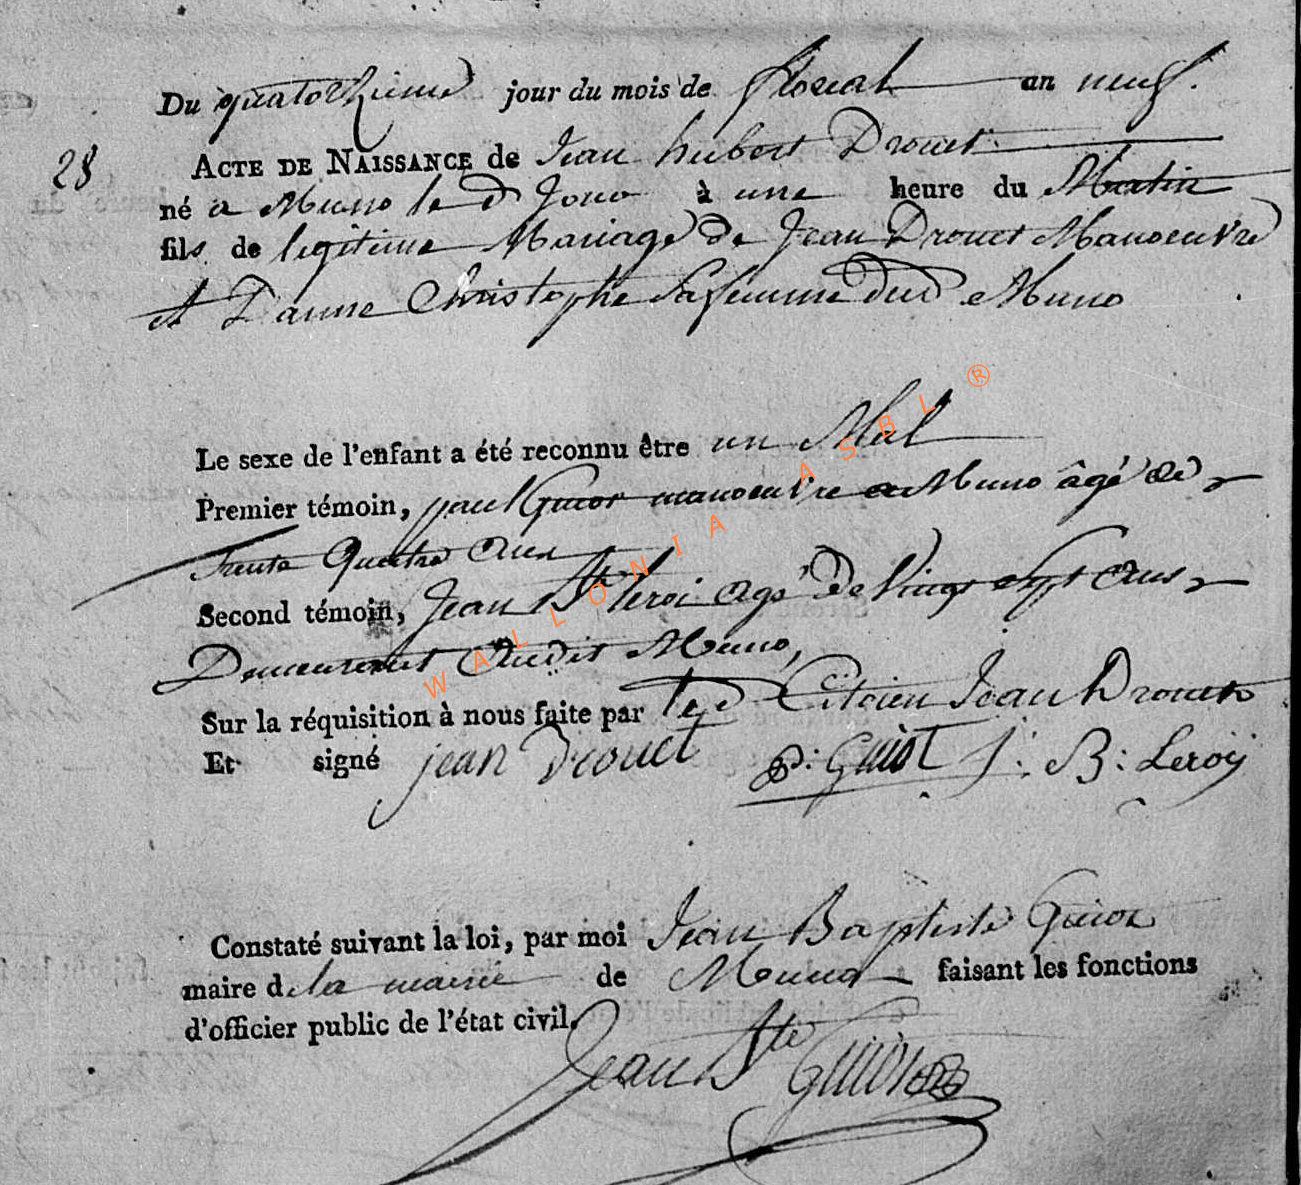 Du quatorzieme jour du mois de floreal an neuf.
28
ACTE DE NAISSANCE de Jean hubert Drouet
né a Muno le d Jour à une heure du Matin
fils de legitime Mariage de Jean Drouet Manoeuvre
et D'anne Christophe Sa femme dud Muno
Le sexe de l'enfant a été reconnu être un Mal
Premier témoin, paul Guiot manoeuvre a Muno âgé de
trente Quatre Ans
Second témoin, Jean Bte leroi agé De Vingt Sept Ans
Demeurant Audit Muno,
Sur la réquisition à nous faite par le d Citoien Jean Drouet
Et signé jean Drouet P: Guiot J: B: Leroÿ
Constaté suivant la loi, par moi Jean Baptiste Guiot
maire de la mairie de Muno faisant les fonctions
d'officier public de l'état civil.
Jean Bte Guiot
WALLONIA ASBL ®